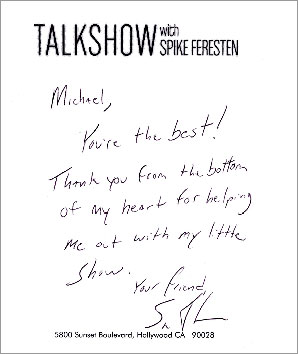 TALKSHOW with SPIKE FERESTEN
Michael,
You're the best!
Thank you from the bottom
of my heart for helping
me out with my little
show.
Your friend,
5800 Sunset Boulevard, Hollywood CA 90028